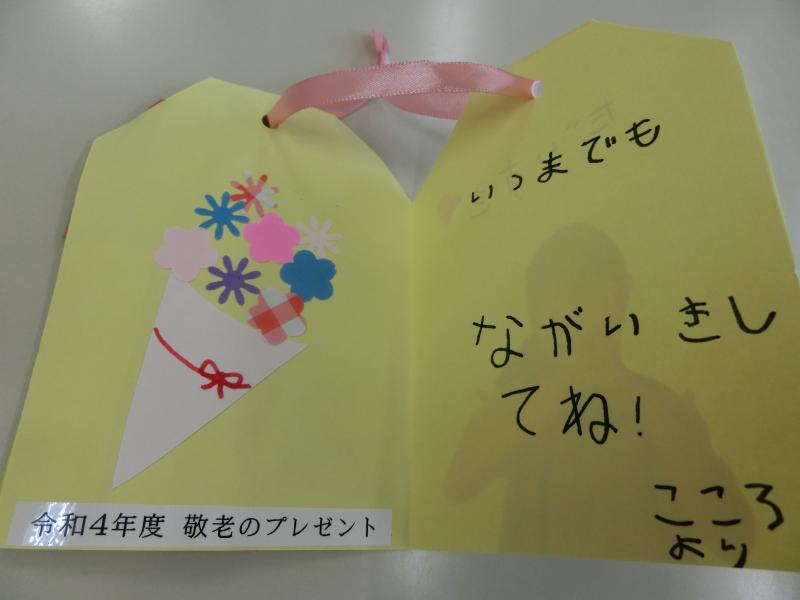 令和4年度 敬老のプレゼント
いつまでも
ながいきし
てね!
こころ
より